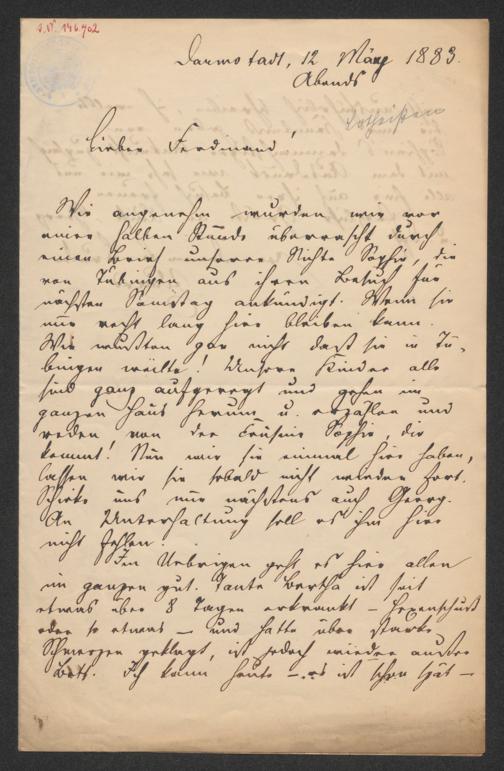 J.N. 146.702
Darmstadt, 12 März 1883.
Abends
Lotheißen
Lieber Ferdinand!
Wie angenehm wurden wir vor
einer halben Stunde überrascht durch
einen Brief unserer Nichte Sophie, die
von Tübingen aus ihren Besuch für
nächsten Samstag ankündigt. Wenn sie
nur recht lang hier bleiben kann.
Wir wußten gar nicht daß sie in Tü-
bingen weilte! Unsere Kinder alle
sind ganz aufgeregt und gehen im
ganzen Haus herum u. erzählen und
reden von der Cousine Sophie, die
kommt! Nun wir sie einmal hier haben,
lassen wir sie sobald nicht wieder fort.
Schicke uns nur nächstens auch Georg.
An Unterhaltung soll es ihm hier
nicht fehlen.
Im Uebrigen geht es hier allen
im ganzen gut. Tante Bertha ist seit
etwas über 8 Tagen erkrankt – Hexenschuß
oder so etwas – und hatte über starke
Schmerzen geklagt, ist jedoch wieder außer
Bett. Ich kann heute – es ist schon spät –